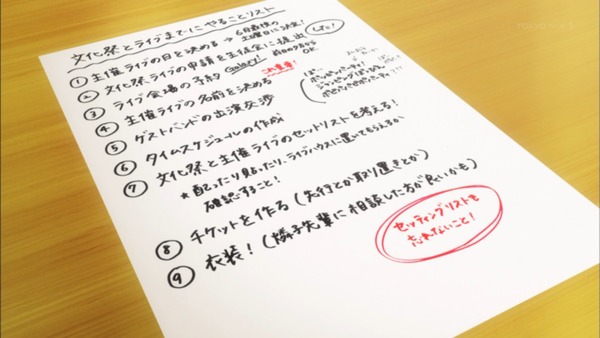 文化祭とライブまでにやることリスト
① 主催ライブの日を決める → 6月最後の土曜日に決定!
した!
② 文化祭ライブの申請を生徒会に提出
前日の夕方からOK
③ ライブ会場の予約 Galaxy!
④ 主催ライブの名前を決める
これ重要!
⑤ ゲストバンドの出演交渉
⑥ タイムスケジュールの作成
⑦ 文化祭と主催ライブのセットリストを考える!
★配ったり貼ったり、ライブハウスに置いてもらえるか
確認すること!
⑧ チケットを作る(先行とか取り置きとか)
⑨ 衣装!(燐子先輩に相談した方が良いかも)
セッティングリストも
忘れないこと!